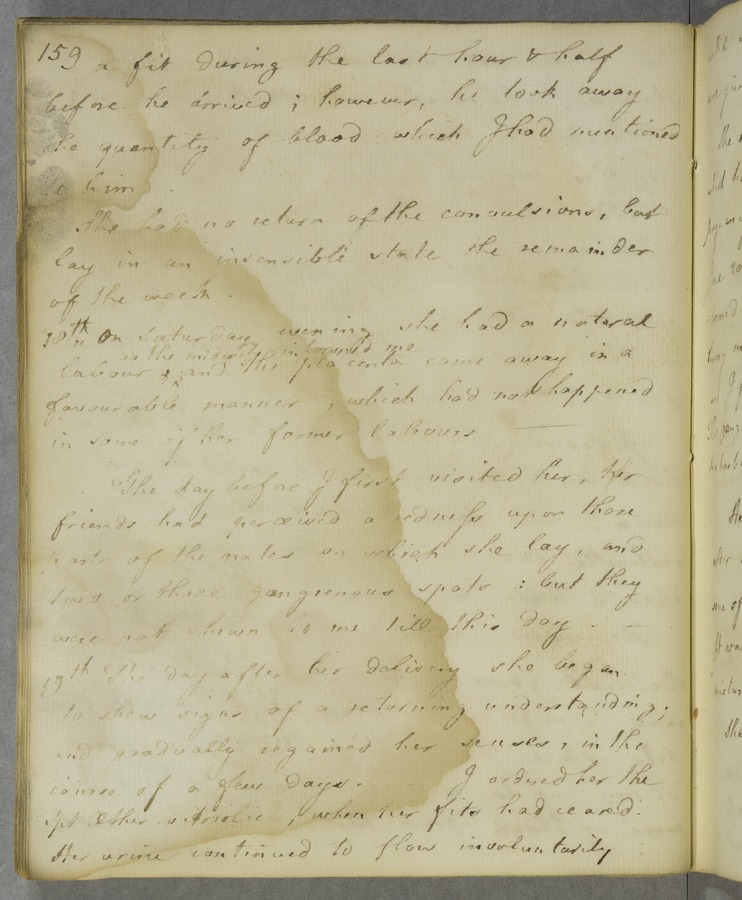 159 a fit during the last hour & half
before he arrived; however, he took away
the quantity of blood which I had mentioned
to him.
She had no return of the convulsions, but
lay in an insensible state the remainder
of the week.
18th On Saturday evening she had a natural
as the midwife informed me
labour, and the placenta came away in a
favourable manner, which had not happened
in some of her former labours
The day before I first visited her, her
friends had perceived a redness upon those
parts of the nates on which she lay, and
two or three gangrenous spots: but they
were not shewn to me till this day.
19th The day after her delivery she began
to shew signs of a returning understanding;
and gradually regained her senses, in the
course of a few days. I ordered her the
spt Æther. vitriolic, when her fits had ceased.
Her urine continued to flow involuntarily